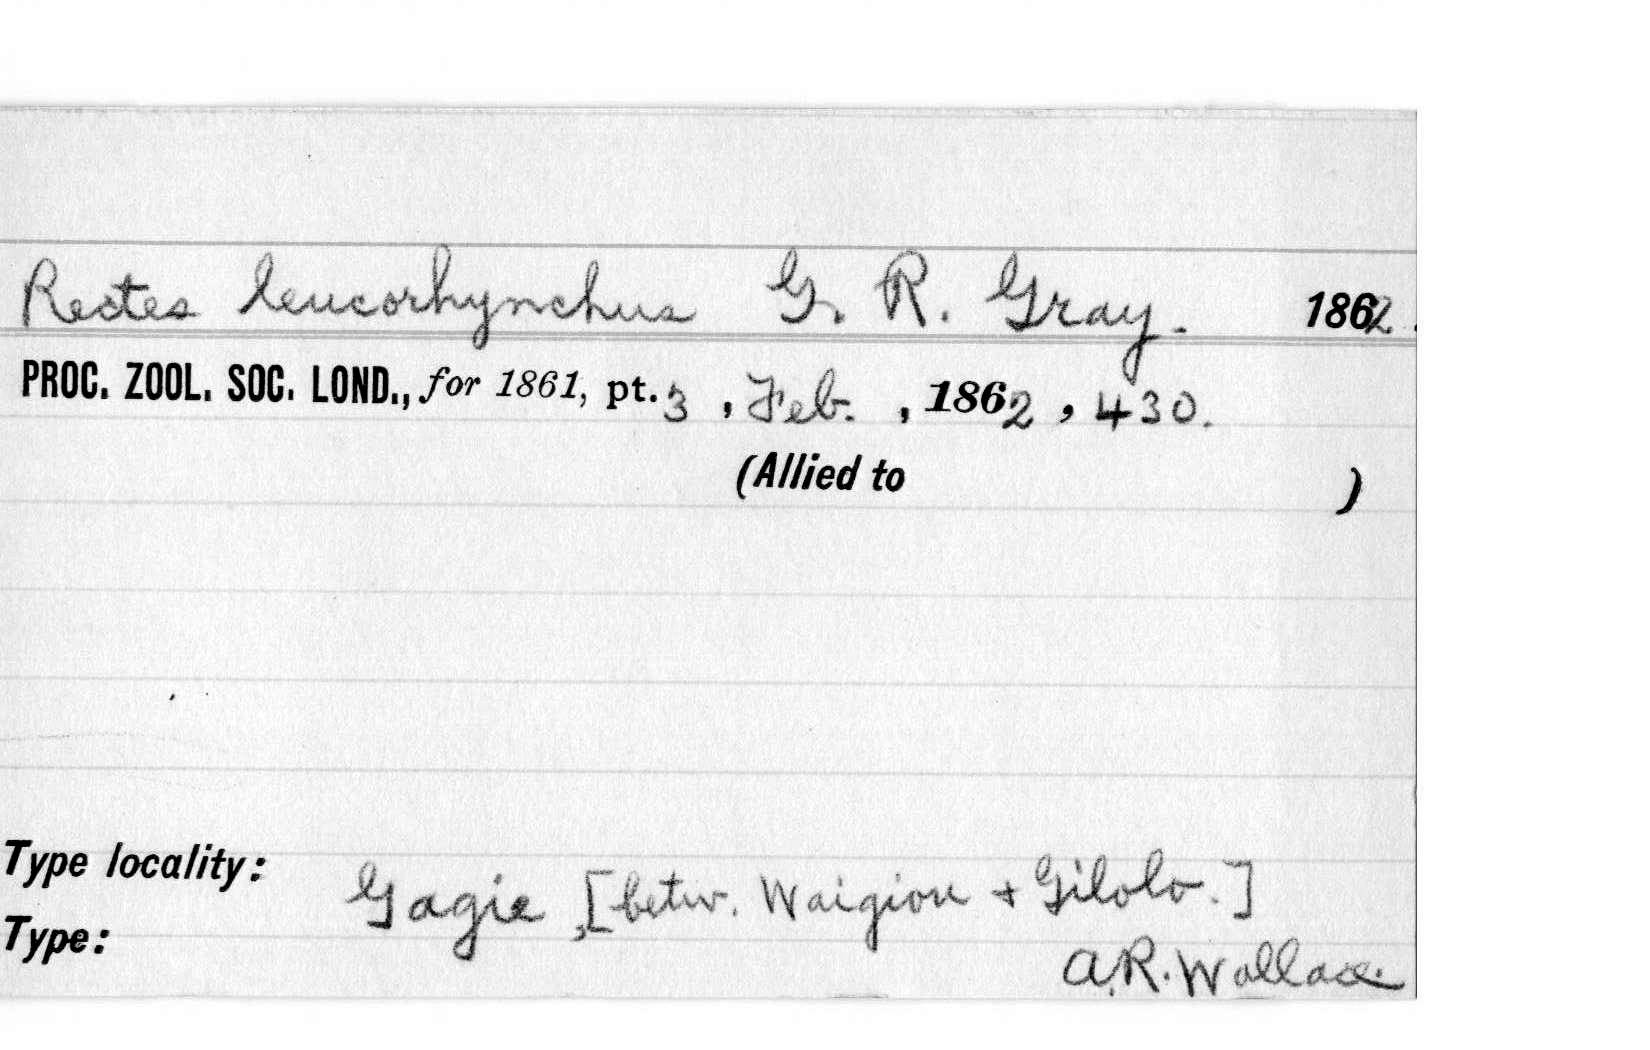 Rectes leucorhynchus G. R. Gray. 1862.
PROC. ZOOL. SOC. LOND., for 1861, pt. 3, Feb., 1862, 430.
(Allied to )
Type locality: Gagie, [betw. Waigiou + Gilolo.]
Type: A.R. Wallace.